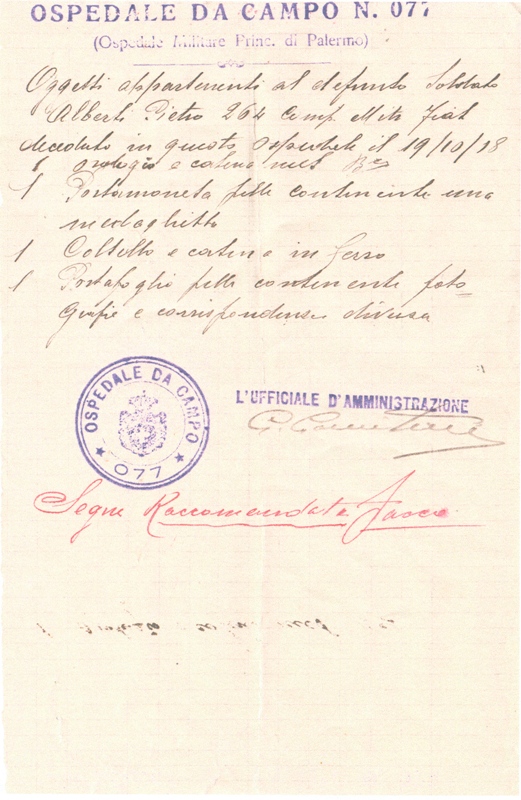 OSPEDALE DA CAMPO N. 077
(Ospedale Militare Princ. di Palermo)
Oggetti appartenenti al defunto Soldato
Alberti Pietro 264 Comp. Mitr. Fiat
deceduto in questo ospedale il 19/10/18
1 orologio e catena
1 Portamoneta pelle contenente una
medaglietta
1 Coltello e catena in ferro
1 Portafoglio pelle contenente foto-
grafie e corrispondenza diversa
OSPEDALE DA CAMPO
077
L'UFFICIALE D'AMMINISTRAZIONE
Segue Raccomandata